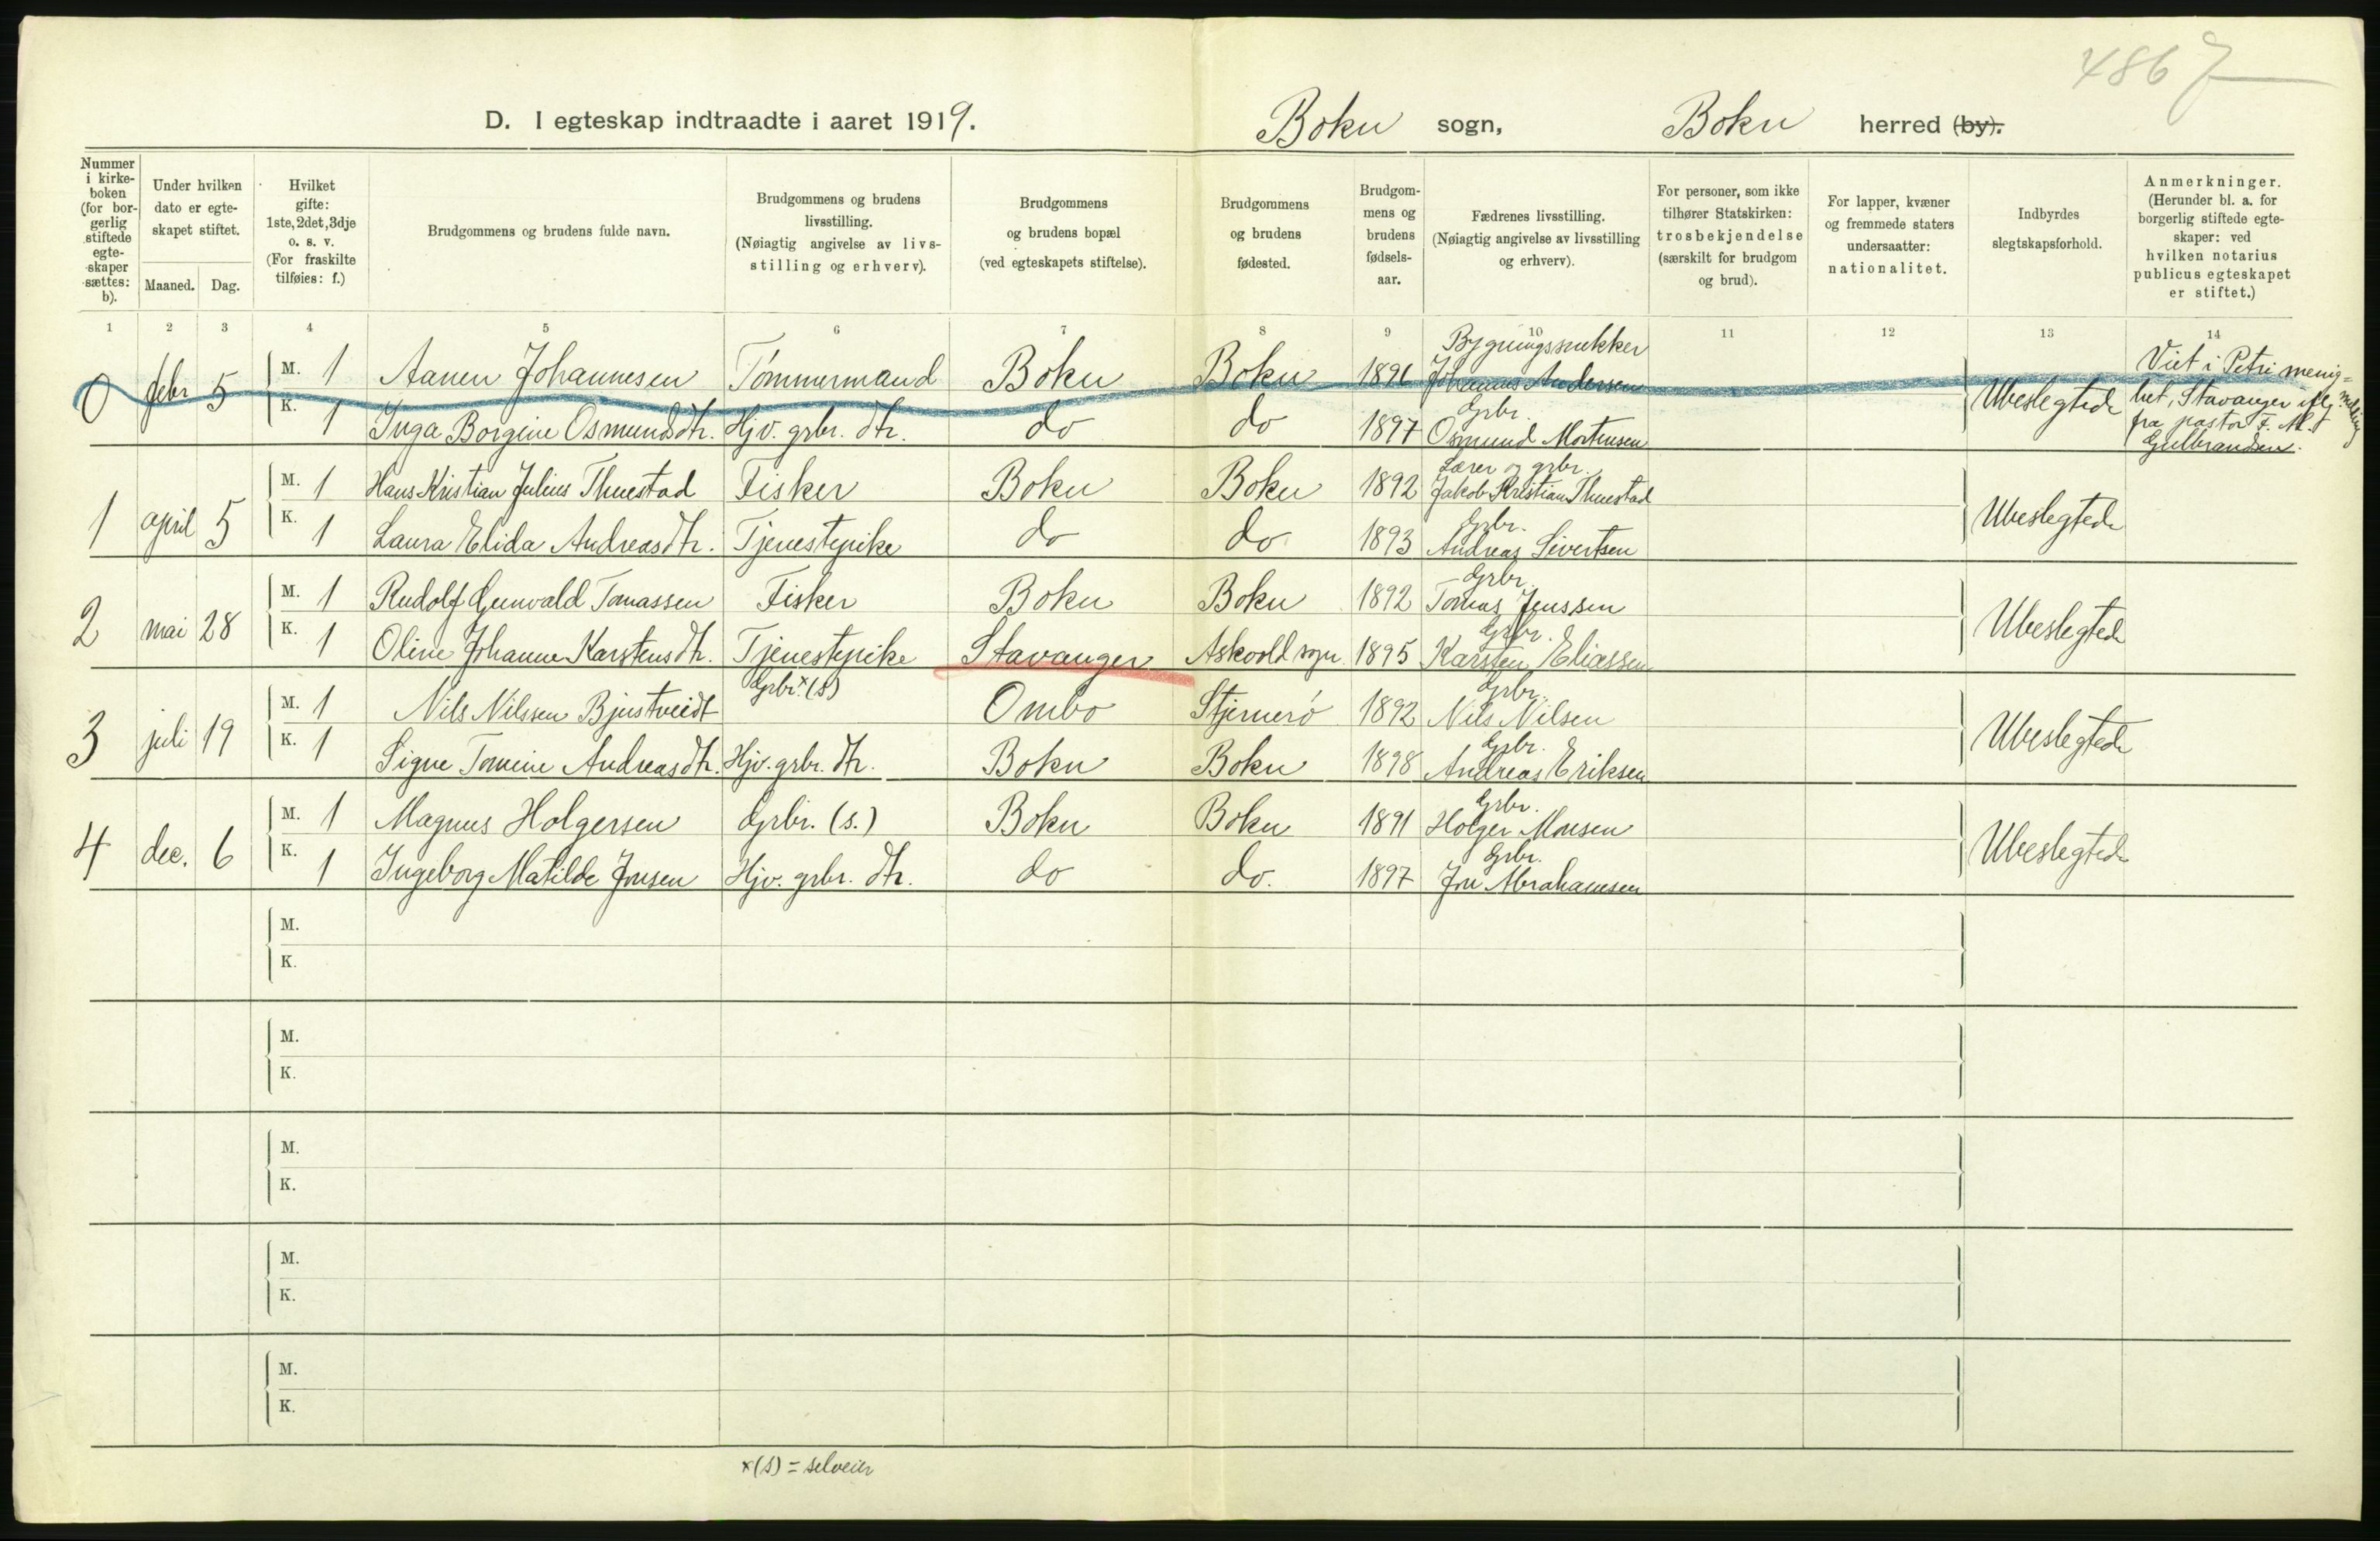 486 7
D. I egteskap indtraadte i aaret 1919. Bokn sogn, Bokn herred (by).
Nummer i kirkeboken (for borgerlig stiftede egteskaper sættes: b).
Under hvilken dato er egteskapet stiftet.
Maaned. Dag.
Hvilket gifte: 1ste, 2det, 3dje o. s. v. (For fraskilte tilføies: f.)
Brudgommens og brudens fulde navn.
Brudgommens og brudens livsstilling. (Nøiagtig angivelse av livsstilling og erhverv).
Brudgommens og brudens bopæl (ved egteskapets stiftelse).
Brudgommens og brudens fødested.
Brudgommens og brudens fødselsaar.
Fædrenes livsstilling. (Nøiagtig angivelse av livsstilling og erhverv).
For personer, som ikke tilhører Statskirken: trosbekjendelse (særskilt for brudgom og brud).
For lapper, kvæner og fremmede staters undersaatter: nationalitet.
Indbyrdes slegtskapsforhold.
Anmerkninger. (Herunder bl. a. for borgerlig stiftede egteskaper: ved hvilken notarius publicus egteskapet er stiftet.)
1 2 3 4 5 6 7 8 9 10 11 12 13 14
0 febr 5 M. 1 Aanen Johannesen Tømmermand Bokn Bokn 1891 Bygningssnekker Johannes Andersen Ubeslegtede Viet i Petri menighet, Stavanger iflg. melding fra pastor F. M. Gulbrandsen.
K. 1 Inga Borgine Osmundsdtr. Hjv. grbr. dtr. do do 1897 Grbr. Osmund Mortensen
1 april 5 M. 1 Hans Kristian Julius Thuestad Fisker Bokn Bokn 1892 Lærer og grbr. Jakob Kristian Thuestad Ubeslegtede
K. 1 Laura Elida Andreasdtr. Tjenestepike do do 1893 Grbr. Andreas Sivertsen
2 mai 28 M. 1 Rudolf Gunvald Tomassen Fisker Bokn Bokn 1892 Grbr. Tomas Jenssen Ubeslegtede
K. 1 Oline Johanne Karstensdtr. Tjenestepike Stavanger Askvold sogn 1895 Grbr. Karsten Eliassen
3 juli 19 M. 1 Nils Nilssen Bjustveidt Grbr. x (s) Ombo Stjernerø 1892 Grbr. Nils Nilsen Ubeslegtede
K. 1 Signe Tomine Andreasdtr. Hjv. grbr. dtr. Bokn Bokn 1898 Grbr. Andreas Eriksen
4 dec. 6 M. 1 Magnus Holgersen Grbr. (s.) Bokn Bokn 1891 Grbr. Holger Monsen Ubeslegtede
K. 1 Ingeborg Matilde Jonsen Hjv. grbr. dtr. do do. 1897 Grbr. Jon Abrahamsen
M.
K.
M.
K.
M.
K.
M.
K.
M.
K.
x (s) = selveier